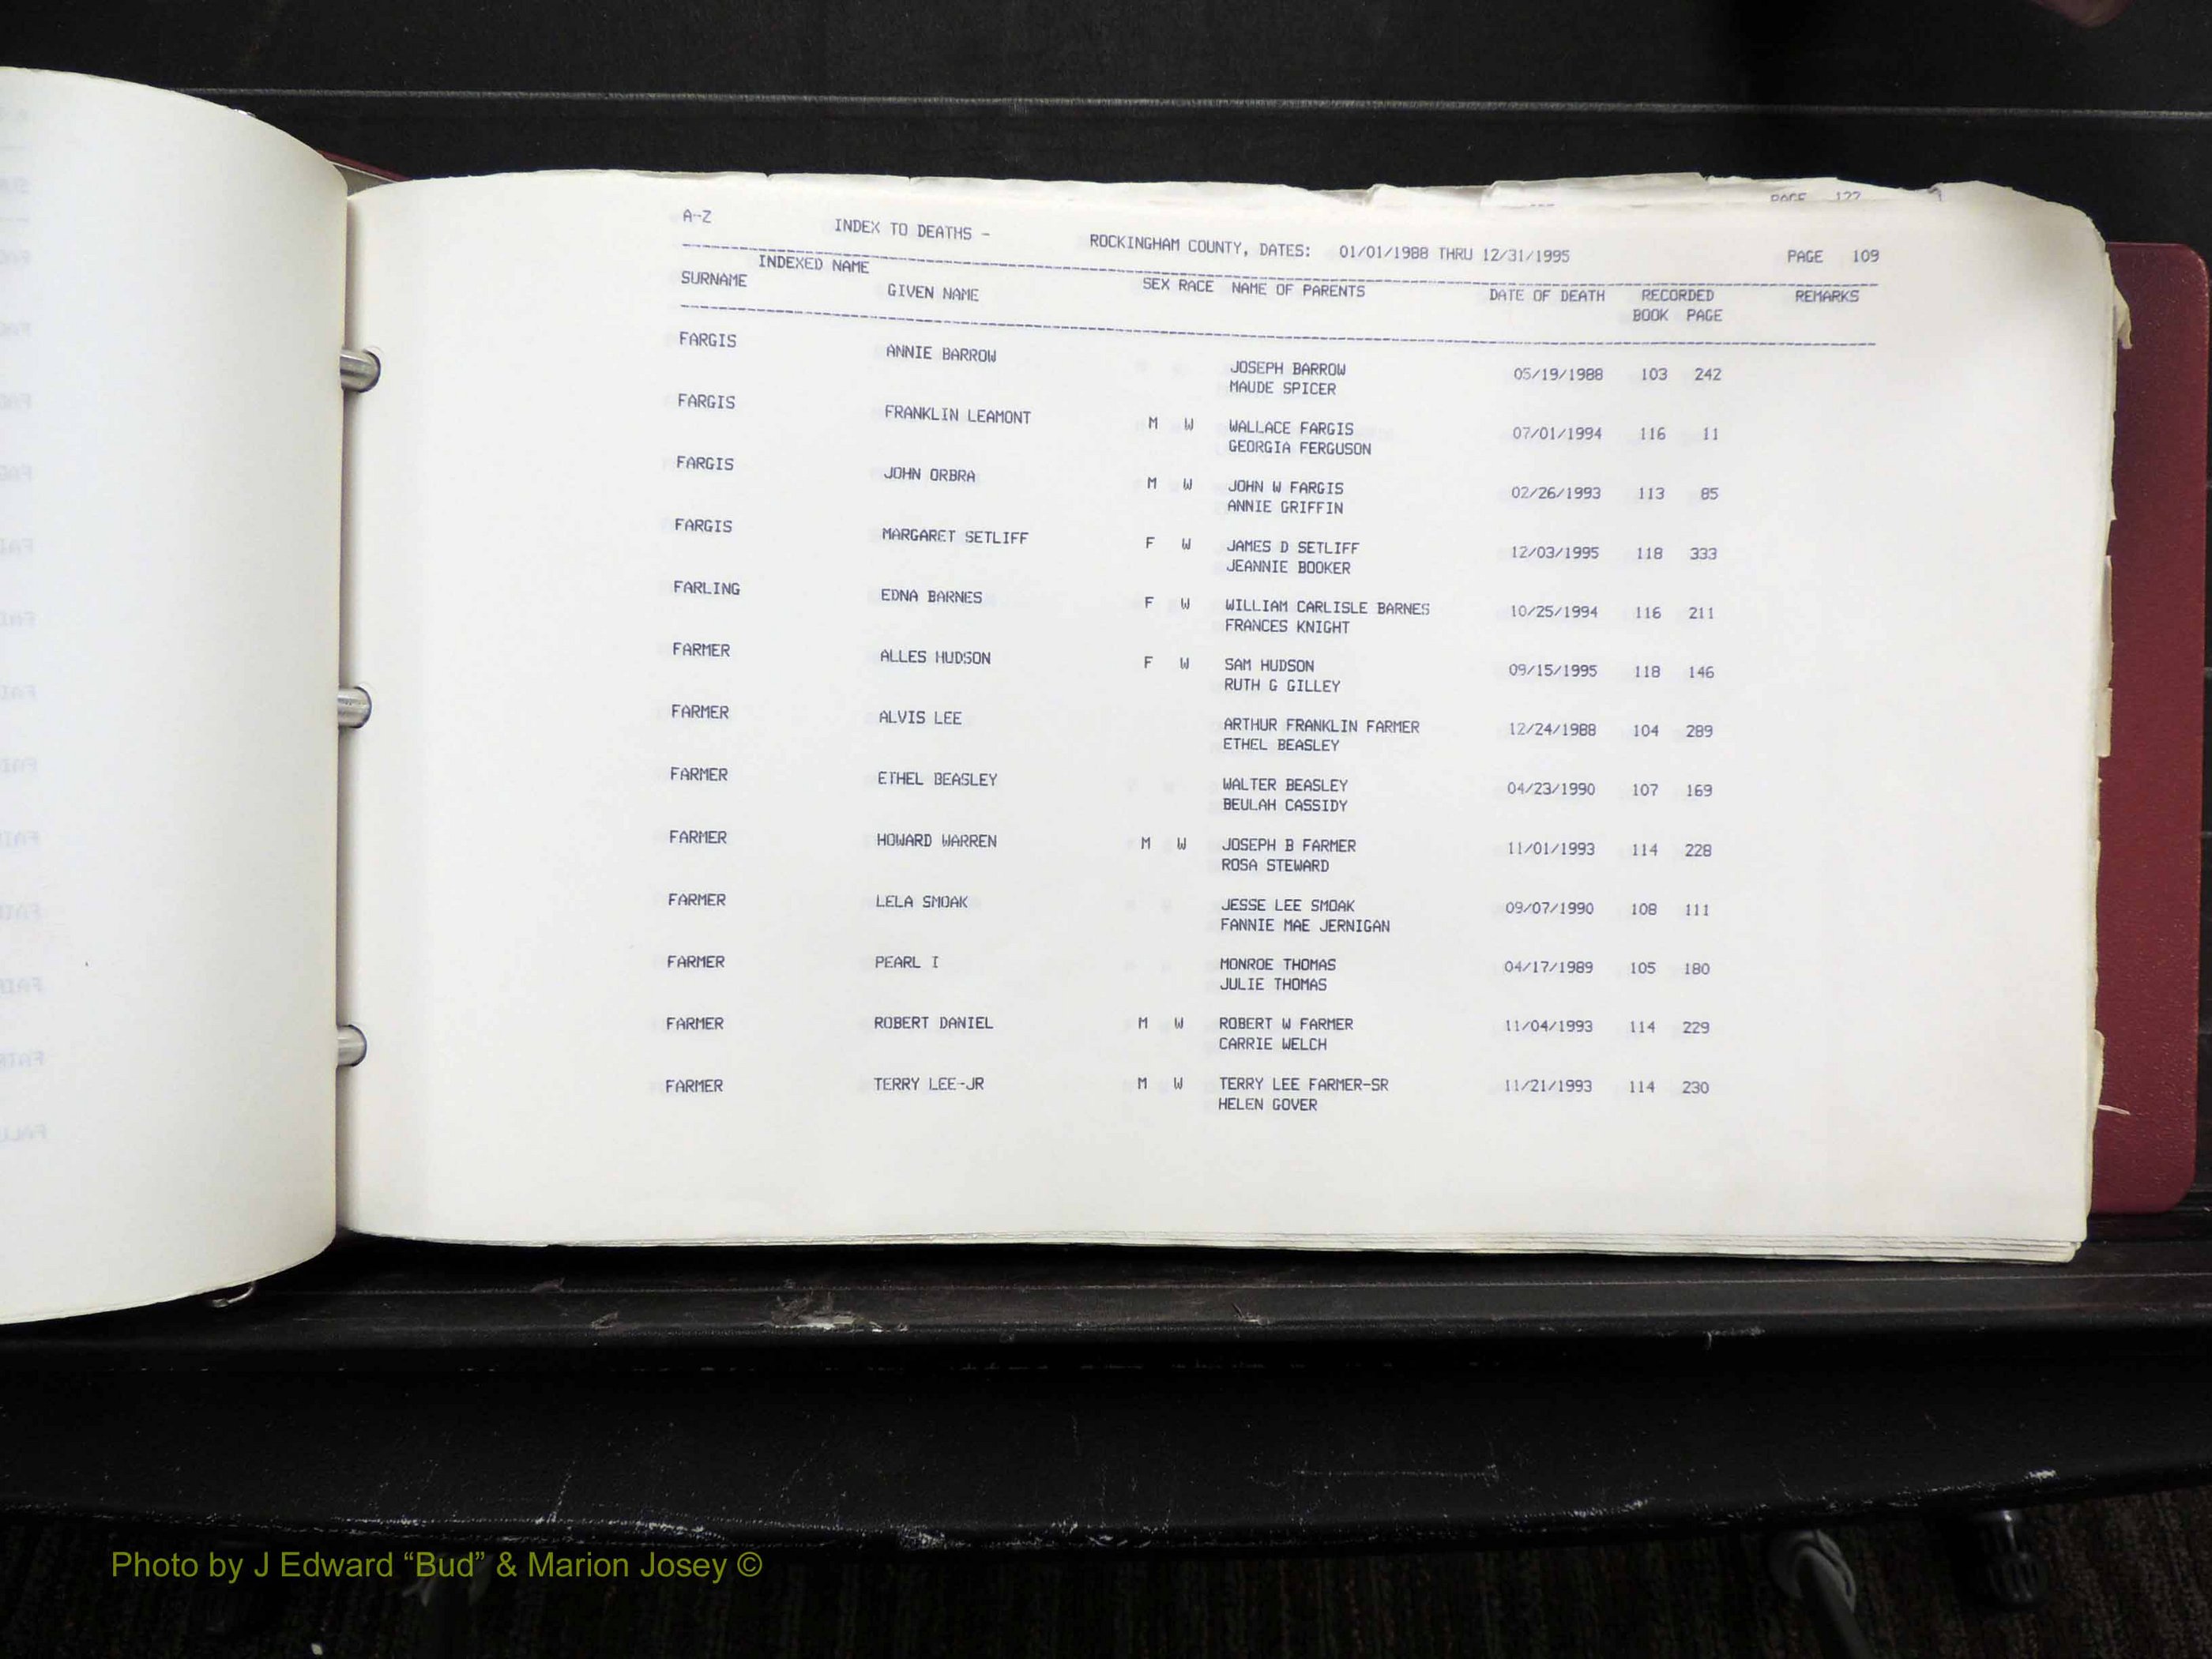 PAGE 122
A-Z INDEX TO DEATHS - ROCKINGHAM COUNTY, DATES: 01/01/1988 THRU 12/31/1995 PAGE 109
INDEXED NAME
SURNAME GIVEN NAME SEX RACE NAME OF PARENTS DATE OF DEATH RECORDED REMARKS
BOOK PAGE
FARGIS ANNIE BARROW JOSEPH BARROW 05/19/1988 103 242
MAUDE SPICER
FARGIS FRANKLIN LEAMONT M W WALLACE FARGIS 07/01/1994 116 11
GEORGIA FERGUSON
FARGIS JOHN ORBRA M W JOHN W FARGIS 02/26/1993 113 85
ANNIE GRIFFIN
FARGIS MARGARET SETLIFF F W JAMES D SETLIFF 12/03/1995 118 333
JEANNIE BOOKER
FARLING EDNA BARNES F W WILLIAM CARLISLE BARNES 10/25/1994 116 211
FRANCES KNIGHT
FARMER ALLES HUDSON F W SAM HUDSON 09/15/1995 118 146
RUTH G GILLEY
FARMER ALVIS LEE ARTHUR FRANKLIN FARMER 12/24/1988 104 289
ETHEL BEASLEY
FARMER ETHEL BEASLEY WALTER BEASLEY 04/23/1990 107 169
BEULAH CASSIDY
FARMER HOWARD WARREN M W JOSEPH B FARMER 11/01/1993 114 228
ROSA STEWARD
FARMER LELA SMOAK JESSE LEE SMOAK 09/07/1990 108 111
FANNIE MAE JERNIGAN
FARMER PEARL I MONROE THOMAS 04/17/1989 105 180
JULIE THOMAS
FARMER ROBERT DANIEL M W ROBERT W FARMER 11/04/1993 114 229
CARRIE WELCH
FARMER TERRY LEE-JR M W TERRY LEE FARMER-SR 11/21/1993 114 230
HELEN GOVER
Photo by J Edward “Bud” & Marion Josey ©